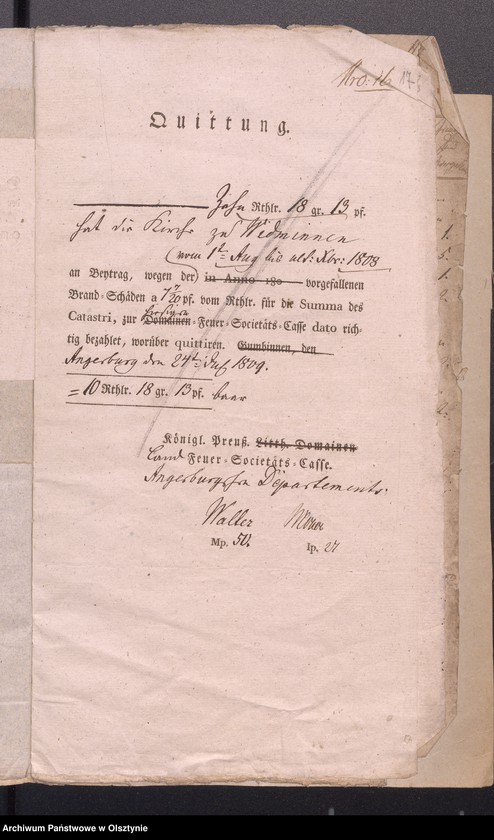 Nro: 16
Quittung.
Zehn Rthlr. 18 gr. 13 pf.
hat die Kirche zu Widminnen
(vom 1t Aug bis ult: Xbr: 1808
an Beytrag, wegen der) in Anno 180 vorgefallenen
Brand-Schäden a 7 7/20 pf. vom Rthlr. für die Summa des
Catastri, zur Domainen-Feuer-Societäts-Casse dato rich-
tig bezahlet, worüber quittiren. Gumbinnen, den
Angerburg den 24t 1809.
= 10 Rthlr. 18 gr. 13 pf. baar
Königl. Preuß. Litth. Domainen
Land Feuer-Societäts-Casse.
Angerburgschen Departements.
Walter
Mp. 50. Ip. 27
Archiwum Państwowe w Olsztynie